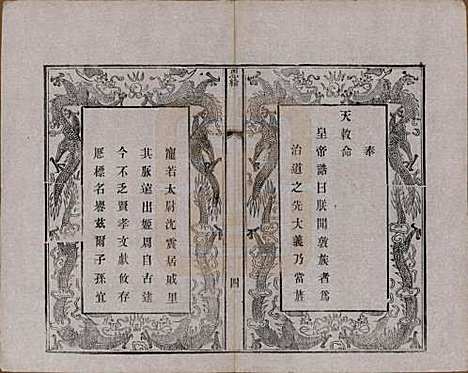 奉
天敕命
皇帝誥曰朕聞敦族者爲
治道之先大義乃當旌
恩綸
四
寵若太尉沈震居戚里
其脈遠出姬周自古迄
今不乏賢孝文獻攸存
厯標名譽茲爾子孫宜